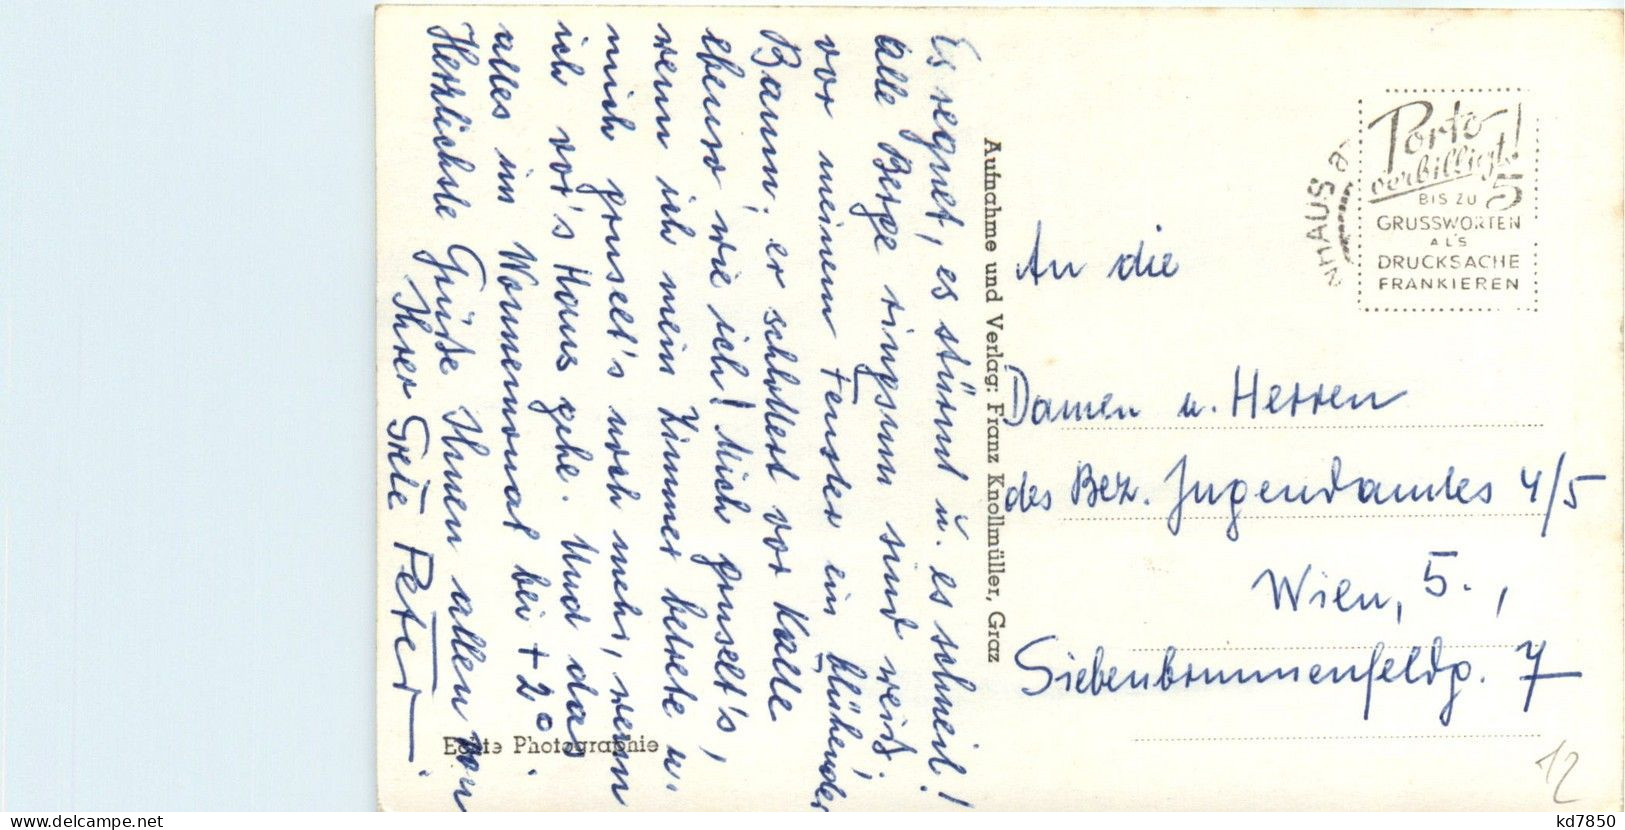 Es regnet, es stürmt u. es schneit!
Alle Berge ringsum sind weiß.
Vor meinem Fenster ein blühender
Baum; er schlottert vor Kälte
ebenso wie ich! Mich gruselt's,
wenn ich mein Zimmer betrete u.
mich gruselt's noch mehr, wenn
ich vor's Haus gehe. Und das
alles im Wonnemonat bei +2°.
Herzlichste Grüße Ihnen allen von
Ihrer Grete Peter.
Echte Photographie
Aufnahme und Verlag: Franz Knollmüller, Graz
NHAUS a
Porto
verbilligt!
BIS ZU 5
GRUSSWORTEN
ALS
DRUCKSACHE
FRANKIEREN
An die
Damen u. Herren
des Bez. Jugendamtes 4/5
Wien, 5.,
Siebenbrunnenfeldg. 7
12
delcampe.net
kd7850